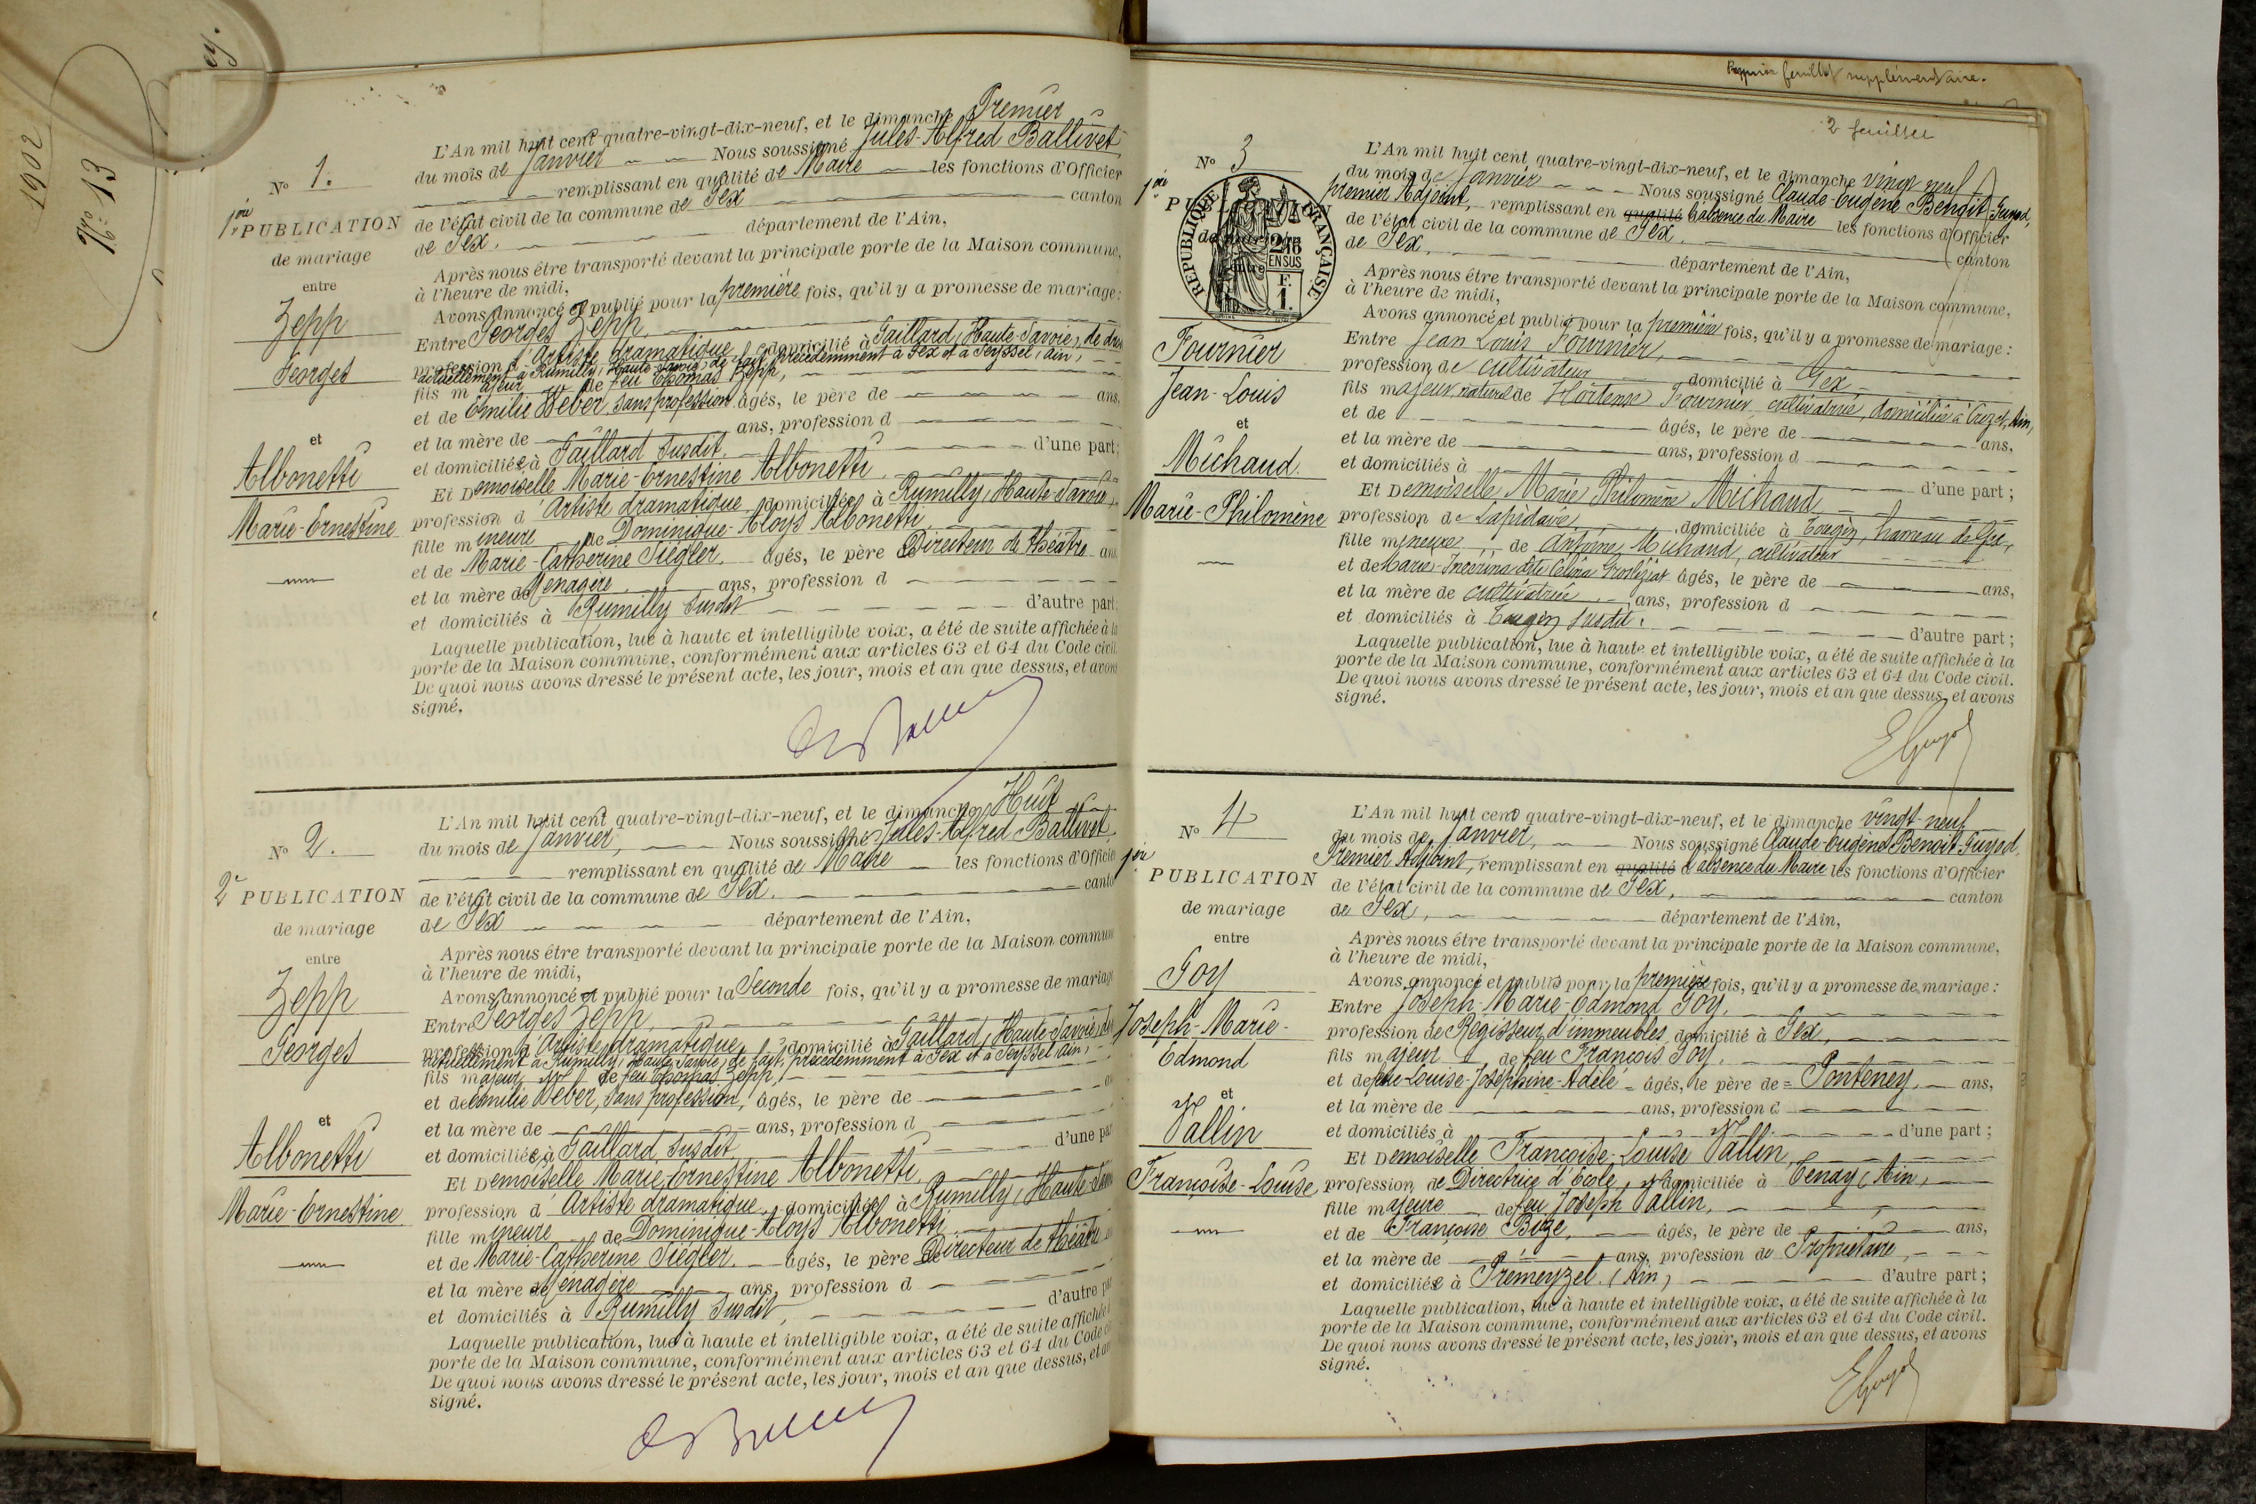 1902
No: 13
ey.
No 1.
1ère PUBLICATION
de mariage
entre
Zepp
Georges
et
Albonetti
Marie-Ernestine
L'An mil huit cent quatre-vingt-dix-neuf, et le dimanche Premier
du mois de Janvier Nous soussigné Jules-Alfred Ballivet
remplissant en qualité de Maire les fonctions d'Officier
de l'état civil de la commune de Gex canton
de Gex. département de l'Ain,
Après nous être transporté devant la principale porte de la Maison commune,
à l'heure de midi,
Avons annoncé et publié pour la première fois, qu'il y a promesse de mariage:
Entre Georges Zepp,
profession d'Artiste dramatique, domicilié à Gaillard, Haute-Savoie, de droit
actuellement à Rumilly, Haute-Savoie, de fait, précédemment à Gex et à Seyssel, Ain,
fils majeur de feu Thomas Zepp,
et de Emilie Weber, sans profession âgés, le père de ans,
et la mère de ans, profession d
et domiciliée à Gaillard susdit, d'une part;
Et Demoiselle Marie-Ernestine Albonetti,
profession d'Artiste dramatique, domiciliée à Rumilly, Haute-Savoie,
fille mineure de Dominique-Aloys Albonetti,
et de Marie-Catherine Siegler, âgés, le père de Directeur de théâtre ans
et la mère de Ménagère, ans, profession d
et domiciliés à Rumilly susdit d'autre part;
Laquelle publication, lue à haute et intelligible voix, a été de suite affichée à la
porte de la Maison commune, conformément aux articles 63 et 64 du Code civil.
De quoi nous avons dressé le présent acte, les jour, mois et an que dessus, et avons
signé.
No 2.
2e PUBLICATION
de mariage
entre
Zepp
Georges
et
Albonetti
Marie-Ernestine
L'An mil huit cent quatre-vingt-dix-neuf, et le dimanche Huit
du mois de Janvier, Nous soussigné Jules-Alfred Ballivet,
remplissant en qualité de Maire les fonctions d'Officie
de l'état civil de la commune de Gex. canto
de Gex département de l'Ain,
Après nous être transporté devant la principale porte de la Maison commun
à l'heure de midi,
Avons annoncé et publié pour la Seconde fois, qu'il y a promesse de mariage
Entre Georges Zepp,
profession d'Artiste dramatique, domicilié à Gaillard, Haute-Savoie, de
actuellement à Rumilly, Haute-Savoie, de fait, précédemment à Gex et à Seyssel, Ain,
fils majeur de feu Thomas Zepp,
et de Emilie Weber, sans profession, âgés, le père de
et la mère de ans, profession d
et domiciliée à Gaillard susdit, d'une par
Et Demoiselle Marie-Ernestine Albonetti,
profession d'Artiste dramatique, domiciliée à Rumilly, Haute-Savo
fille mineure de Dominique-Aloys Albonetti,
et de Marie-Catherine Siegler, âgés, le père de Directeur de théâtre
et la mère de Ménagère ans, profession d
et domiciliés à Rumilly susdit, d'autre pa
Laquelle publication, lue à haute et intelligible voix, a été de suite affichée
porte de la Maison commune, conformément aux articles 63 et 64 du Code ci
De quoi nous avons dressé le présent acte, les jour, mois et an que dessus, et av
signé.
feuillet supplémentaire.
2 feuillet
No 3
1ère PUBLICATION
de mariage
entre
RÉPUBLIQUE FRANÇAISE
2/10
EN SUS
F.
1.
Fournier
Jean-Louis
et
Michaud.
Marie-Philomène
L'An mil huit cent quatre-vingt-dix-neuf, et le dimanche vingt neuf
du mois de Janvier Nous soussigné Claude-Eugène Benoit-Guyod,
premier Adjoint, remplissant en qualité l'absence du Maire les fonctions d'Officier
de l'état civil de la commune de Gex. canton
de Gex, département de l'Ain,
Après nous être transporté devant la principale porte de la Maison commune,
à l'heure de midi,
Avons annoncé et publié pour la première fois, qu'il y a promesse de mariage:
Entre Jean Louis Fournier,
profession de cultivateur domicilié à Gex
fils majeur, naturel de Hortense Fournier cultivatrice, domiciliée à Crozet, Ain,
et de âgés, le père de ans,
et la mère de ans, profession d
et domiciliés à d'une part;
Et Demoiselle Marie Philomène Michaud,
profession de Lapidaire domiciliée à Tougin, hameau de Gex,
fille mineure de Antoine Michaud, cultivateur
et de Marie dite Célina âgés, le père de ans,
et la mère de cultivatrice, ans, profession d
et domiciliés à Tougin susdit. d'autre part;
Laquelle publication, lue à haute et intelligible voix, a été de suite affichée à la
porte de la Maison commune, conformément aux articles 63 et 64 du Code civil.
De quoi nous avons dressé le présent acte, les jour, mois et an que dessus, et avons
signé.
EGuyod
No 4
1ère
PUBLICATION
de mariage
entre
Goy
Joseph-Marie-
Edmond
et
Vallin
Françoise-Louise
L'An mil huit cent quatre-vingt-dix-neuf, et le dimanche vingt-neuf
du mois de Janvier, Nous soussigné Claude-Eugène Benoit-Guyod,
Premier Adjoint, remplissant en qualité l'absence du Maire les fonctions d'Officier
de l'état civil de la commune de Gex, canton
de Gex, département de l'Ain,
Après nous être transporté devant la principale porte de la Maison commune,
à l'heure de midi,
Avons annoncé et publié pour la première fois, qu'il y a promesse de mariage:
Entre Joseph-Marie-Edmond Goy,
profession de Régisseur d'immeubles, domicilié à Gex,
fils majeur de feu François Goy,
et de feue Louise-Joséphine-Adèle âgés, le père de Ponteney, ans,
et la mère de ans, profession d
et domiciliés à d'une part;
Et Demoiselle Françoise-Louise Vallin,
profession de Directrice d'Ecole, domiciliée à Tenay, Ain,
fille majeure de feu Joseph Vallin,
et de Françoise Buge, âgés, le père de ans,
et la mère de ans, profession de Propriétaire,
et domiciliée à Prémeyzel (Ain) d'autre part;
Laquelle publication, lue à haute et intelligible voix, a été de suite affichée à la
porte de la Maison commune, conformément aux articles 63 et 64 du Code civil.
De quoi nous avons dressé le présent acte, les jour, mois et an que dessus, et avons
signé.
EGuyod